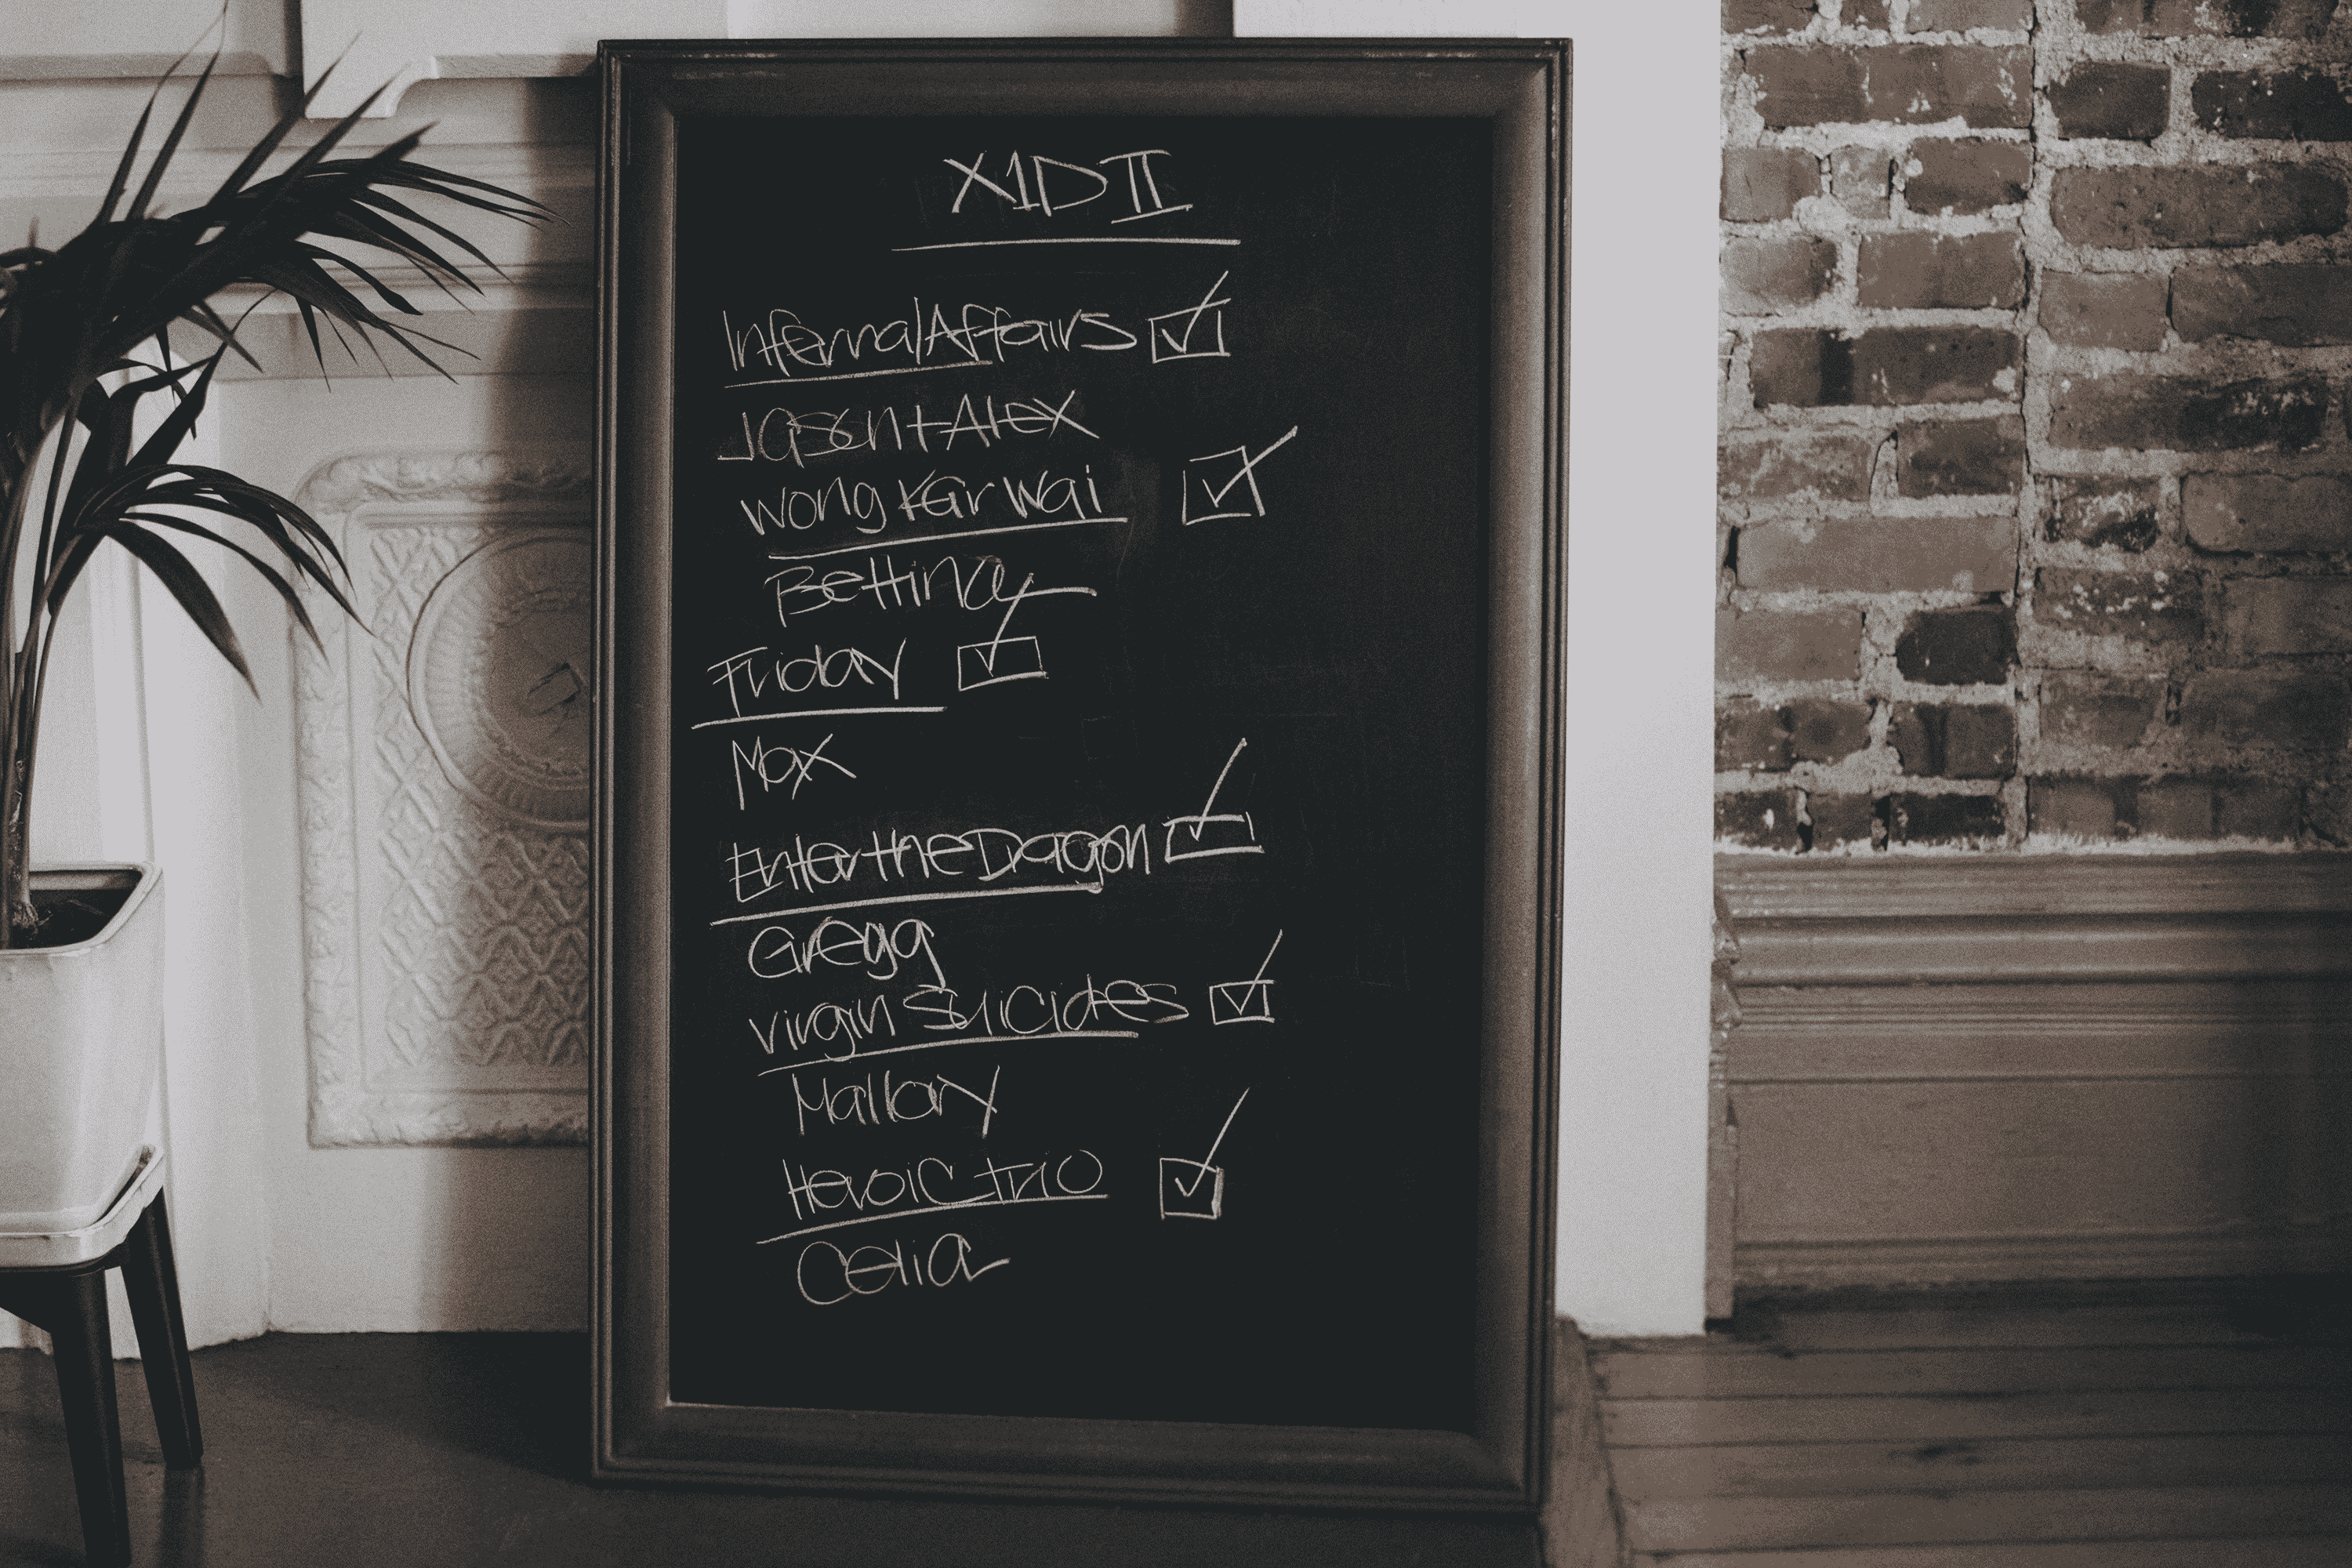 X1D II
Infernal Affairs
Jason + Alex
Wong Kar Wai
Bettina
Friday
Max
Enter the Dragon
Gregg
Virgin Suicides
Mallory
Heroic trio
Celia